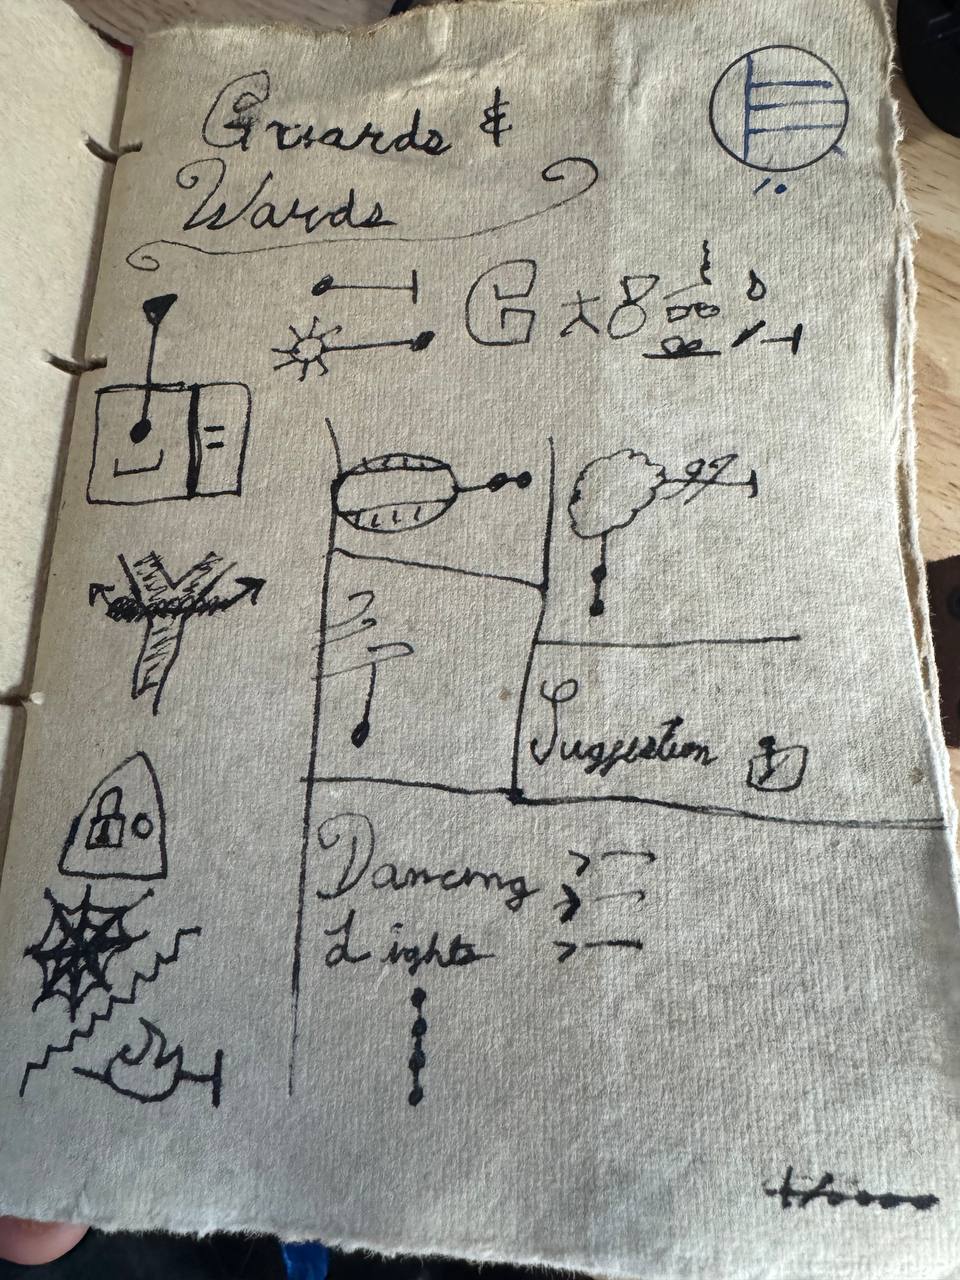 Guards &
Wards
Suggestion
Dancing
Lights